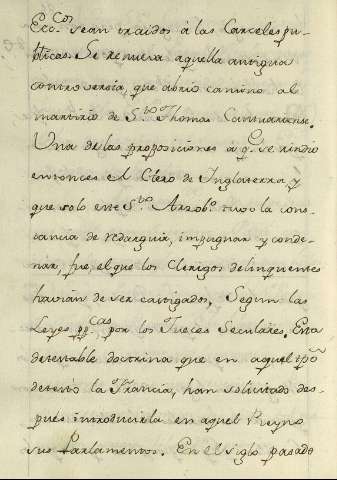 Ecc.cos sean traidos à las Carceles pu-
blicas. Se renueva aquella antigua
controversia, que abrio camino al
martirio de S.to Thomas Cantuariense.
Una de las proposiciones à q.e se rindio
entonces el Clero de Inglaterra y
que solo este S.to Arzob.o tuvo la cons-
tancia de redarguir, impugnar y conde-
nar, fue, el que los Clerigos delinquentes
havian de ser castigados, Segun las
Leyes pp.cas por los Jueces Seculares. Esta
detestable doctrina que en aquel tpõ
detestò la Francia, han solicitado des-
pues introducirla en aquel Reyno
sus Parlamentos. En el siglo pasado